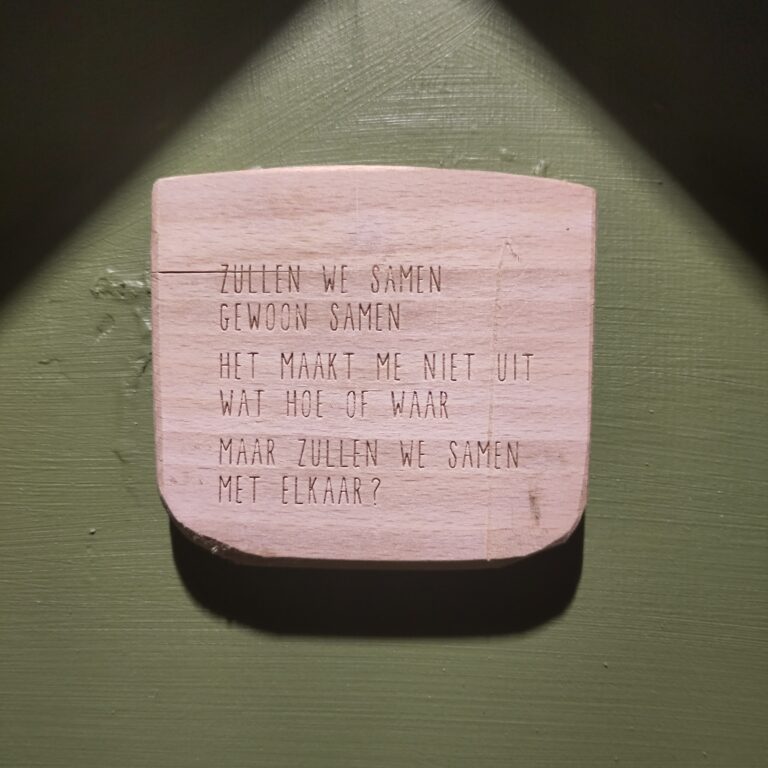 ZULLEN WE SAMEN
GEWOON SAMEN
HET MAAKT ME NIET UIT
WAT HOE OF WAAR
MAAR ZULLEN WE SAMEN
MET ELKAAR?